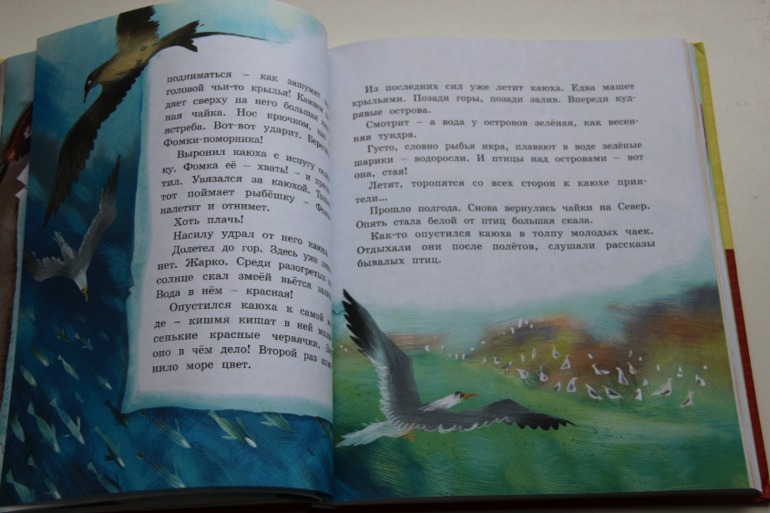 подниматься – как зашумят
головой чьи-то крылья! Камнем
дает сверху на него большая
ная чайка. Нос крючком, как
ястреба. Вот-вот ударит.
Фомки-поморника!
Выронил каюха с испугу
ку. Фомка её – хвать! – и
тил. Увязался за каюхой.
тот поймает рыбёшку –
налетит и отнимет.
Хоть плачь!
Насилу удрал от него каюха
Долетел до гор. Здесь уже
нет. Жарко. Среди разогретых
солнце скал змеёй вьётся
Вода в нём – красная!
Опустился каюха к самой
де – кишмя кишат в ней
сенькие красные червячки.
оно в чём дело! Второй раз
нило море цвет.
Из последних сил уже летит каюха. Едва машет
крыльями. Позади горы, позади залив. Впереди куд-
рявые острова.
Смотрит – а вода у островов зелёная, как весен-
няя тундра.
Густо, словно рыбья икра, плавают в воде зелёные
шарики – водоросли. И птицы над островами – вот
она, стая!
Летят, торопятся со всех сторон к каюхе прия-
тели...
Прошло полгода. Снова вернулись чайки на Север.
Опять стала белой от птиц большая скала.
Как-то опустился каюха в толпу молодых чаек.
Отдыхали они после полётов, слушали рассказы
бывалых птиц.